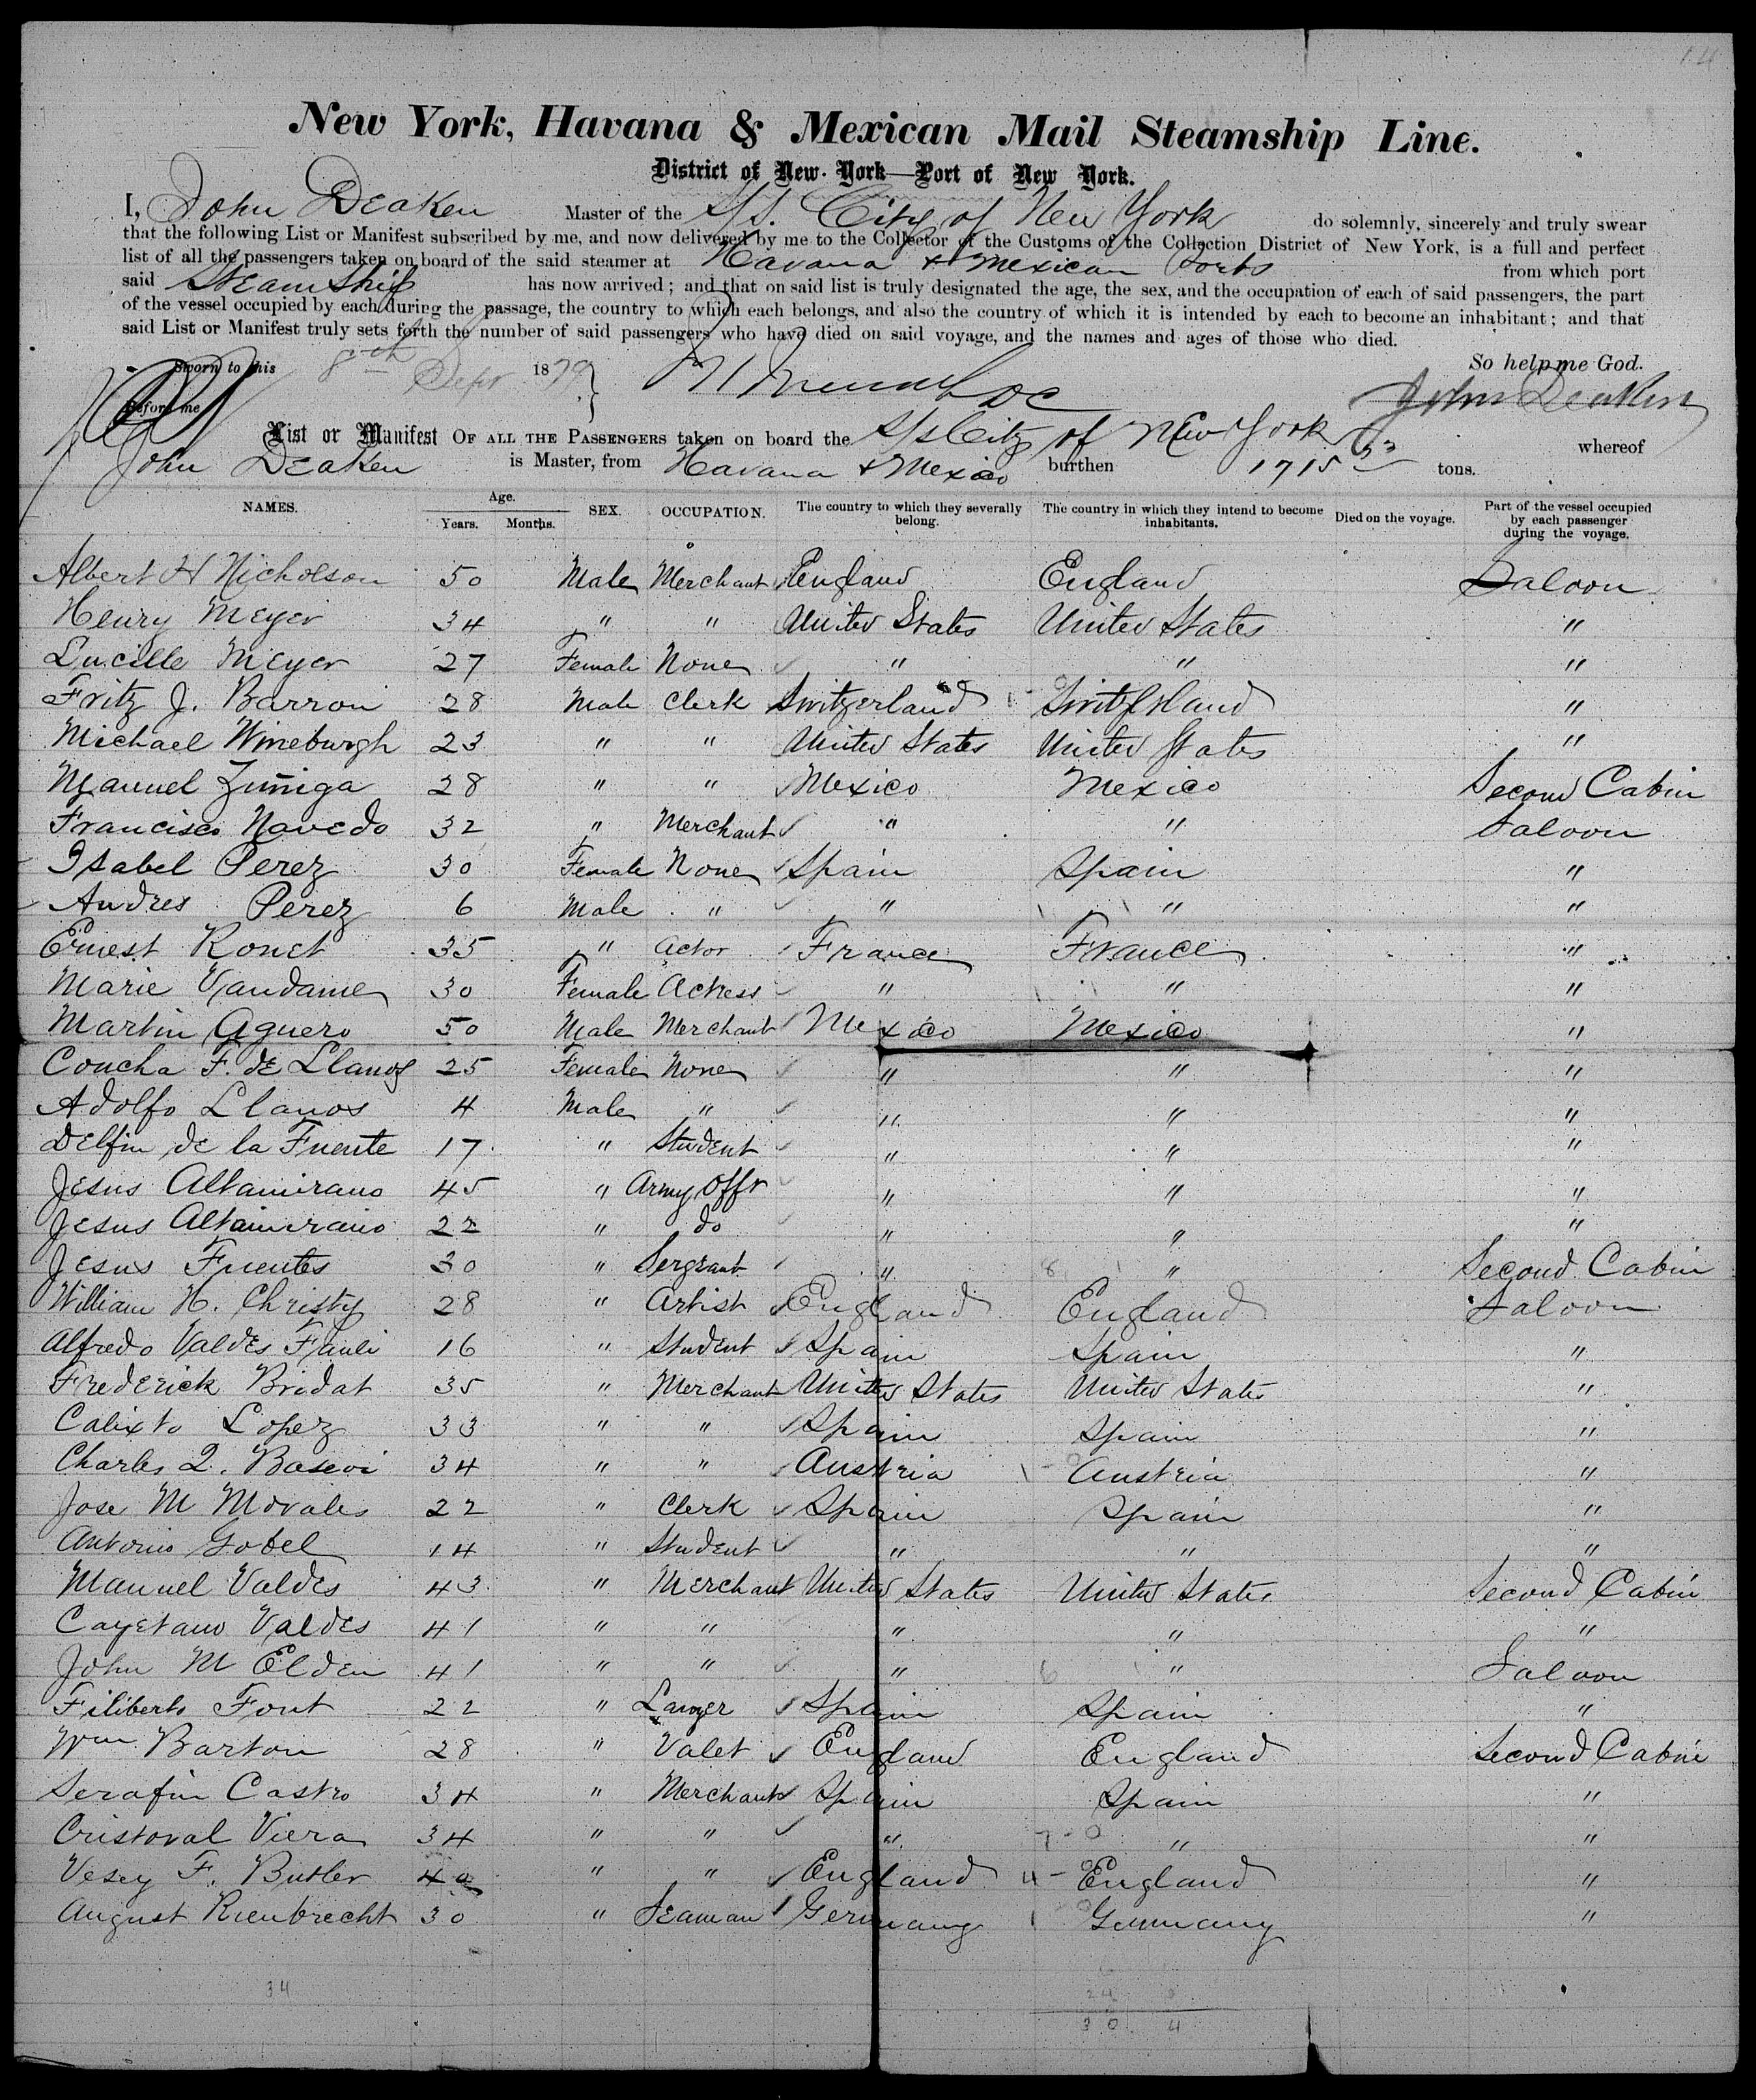 14
New York, Havana & Mexican Mail Steamship Line.
District of New-York—Port of New York.
I, John Deaken Master of the S/S. City of New York do solemnly, sincerely and truly swear
that the following List or Manifest subscribed by me, and now delivered by me to the Collector of the Customs of the Collection District of New York, is a full and perfect
list of all the passengers taken on board of the said steamer at Havana & Mexican Ports from which port
said SteamShip has now arrived; and that on said list is truly designated the age, the sex, and the occupation of each of said passengers, the part
of the vessel occupied by each during the passage, the country to which each belongs, and also the country of which it is intended by each to become an inhabitant; and that
said List or Manifest truly sets forth the number of said passengers who have died on said voyage, and the names and ages of those who died.
So help me God.
Sworn to this 8th Sepr 1879
Before me
John Deaken
List or Manifest OF ALL THE PASSENGERS taken on board the S/S City of New York whereof
John Deaken is Master, from Havana & Mexico burthen 1715 tons.
NAMES. Age. Years. Months. SEX. OCCUPATION. The country to which they severally belong. The country in which they intend to become inhabitants. Died on the voyage. Part of the vessel occupied by each passenger during the voyage.
Albert H Nicholson 50 Male Merchant England England Saloon
Henry Meyer 34 " " United States United States "
Lucille Meyer 27 Female None " " "
Fritz J. Barron 28 Male Clerk Switzerland Switzerland "
Michael Wineburgh 23 " " United States United States "
Manuel Zuñiga 28 " " Mexico Mexico Second Cabin
Francisco Navedo 32 " Merchant " " Saloon
Isabel Perez 30 Female None Spain Spain "
Andres Perez 6 Male " " " "
Ernest Ronet 35 " Actor France France "
Marie Vandame 30 Female Actress " " "
Martin Aguero 50 Male Merchant Mexico Mexico "
Concha F. de Llanos 25 Female None " " "
Adolfo Llanos 4 Male " " " "
Delfin de la Fuente 17 " Student " " "
Jesus Altamirano 45 " Army Offr " " "
Jesus Altamirano 22 " do " " "
Jesus Fuentes 30 " Sergeant " 8 " Second Cabin
William H. Christy 28 " Artist England England Saloon
Alfredo Valdes Fauli 16 " Student Spain Spain "
Frederick Bridat 35 " Merchant United States United States "
Calixto Lopez 33 " " Spain Spain "
Charles Q. Basevi 34 " " Austria Austria "
Jose M Morales 22 " Clerk Spain Spain "
Antonio Gobel 14 " Student " " "
Manuel Valdes 43 " Merchant United States United States Second Cabin
Cayetano Valdes 41 " " " " "
John M Elden 41 " " " 6 " Saloon
Filiberto Font 22 " Lawyer Spain Spain "
Wm Barton 28 " Valet England England Second Cabin
Serafin Castro 34 " Merchant Spain Spain "
Cristoval Viera 34 " " " 7-0 " "
Vesey F. Butler 40 " " England 4-0 England "
August Rienbrecht 30 " Seaman Germany 1 Germany "
34
24
30 4